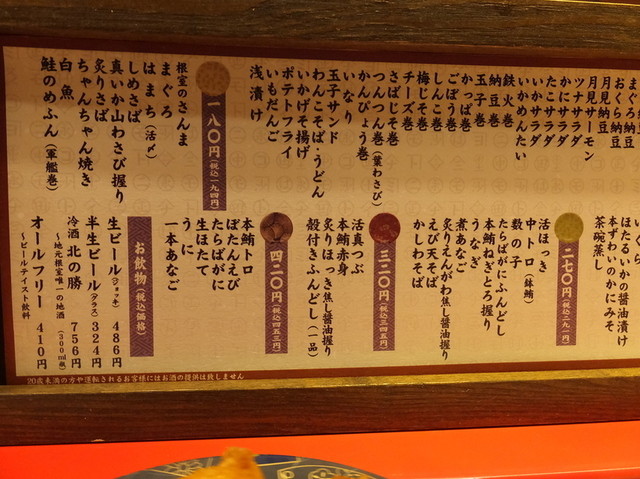 月見納豆
月見サーモン
ツナサラダ
かにサラダ
たこサラダ
いかサラダ
いかめんたい
鉄火巻
納豆巻
玉子巻
かっぱ巻
ごぼう巻
しんこ巻
梅じそ巻
チーズ巻
さばじそ巻
つんつん巻（葉わさび）
かんぴょう巻
いなり
玉子サンド
わんこそば・うどん
いかげそ揚げ
ポテトフライ
いもだんご
浅漬け
一八〇円（税込一九四円）
根室のさんま
まぐろ
はまち（活〆）
しめさば
真いか山わさび握り
炙りさば
ちゃんちゃん焼き
白魚
鮭のめふん（軍艦巻）
ほたるいかの醤油漬け
本ずわいのかにみそ
茶碗蒸し
二七〇円（税込二九一円）
活ほっき
中トロ（鉢鮪）
数の子
たらばがにふんどし
本鮪ねぎとろ握り
うなぎ
煮あなご
炙りえんがわ焦し醤油握り
えび天そば
かしわそば
三二〇円（税込三四五円）
活真つぶ
本鮪赤身
炙りほっき焦し醤油握り
殻付きふんどし（一品）
四二〇円（税込四五三円）
本鮪トロ
ぼたんえび
たらばがに
生ほたて
うに
一本あなご
お飲物（税込価格）
生ビール（ジョッキ） 486円
半生ビール（グラス） 324円
冷酒 北の勝 756円
～地元根室唯一の地酒（300ml瓶）
オールフリー 410円
～ビールテイスト飲料
20歳未満の方や運転されるお客様にはお酒の提供は致しません